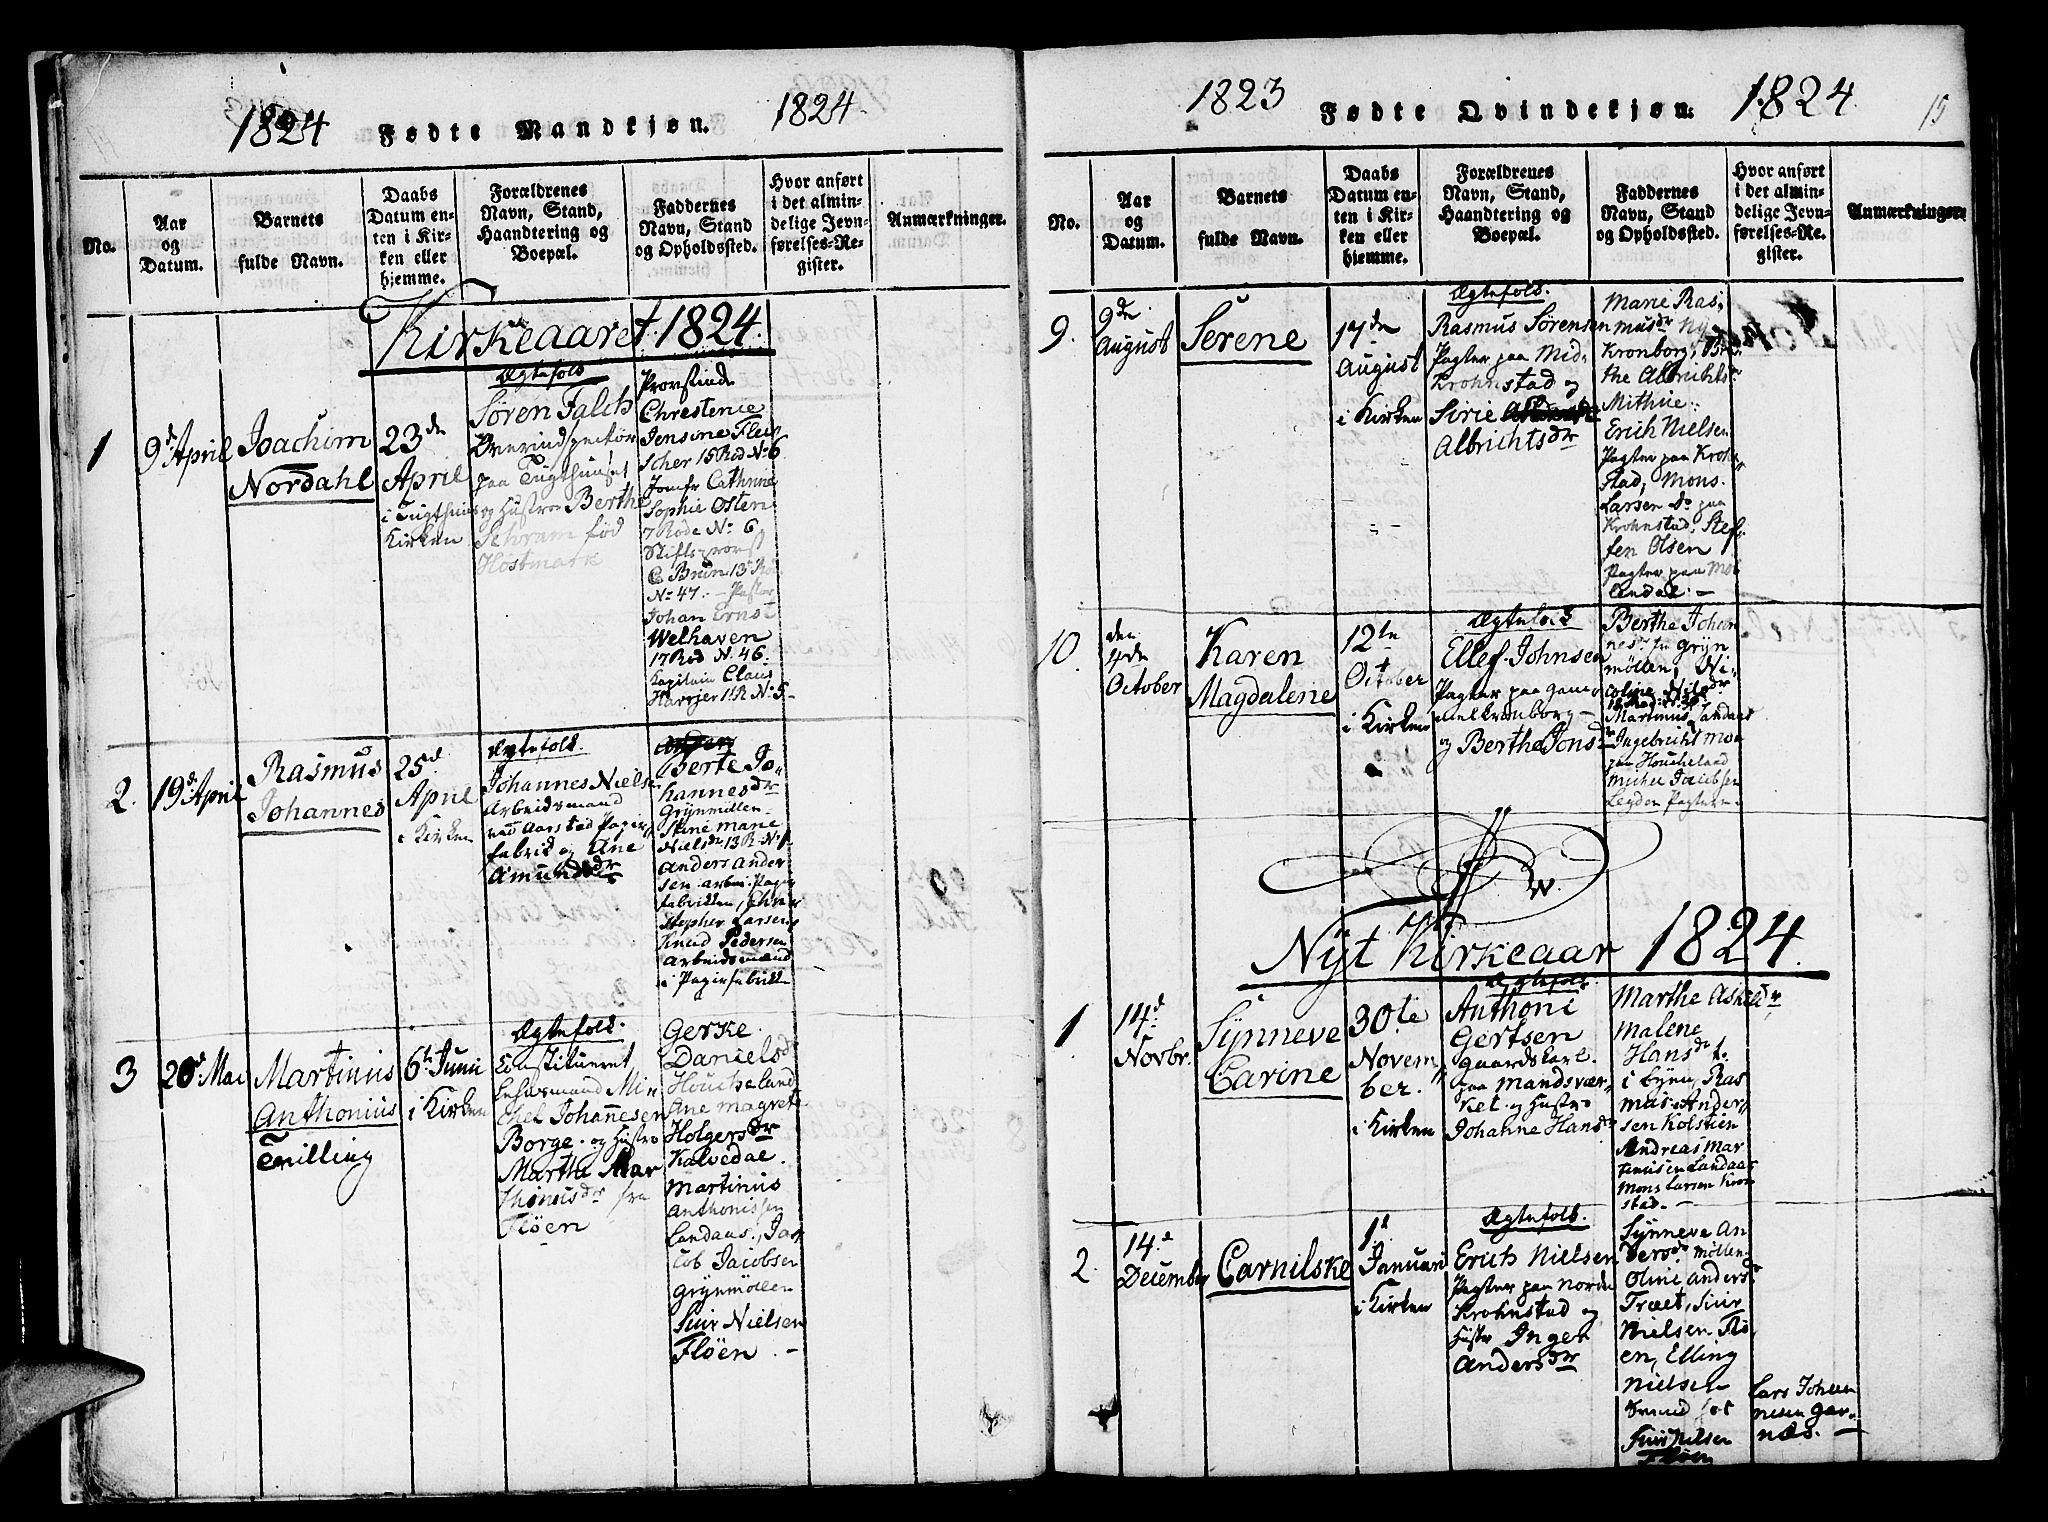 1824 Fødte Mandkjøn. 1824
No.
Aar
og
Datum.
Barnets
fulde Navn.
Daabs
Datum en-
ten i Kir-
ken eller
hjemme.
Forældrenes
Navn, Stand,
Haandtering og
Boepæl.
Faddernes
Navn, Stand
og Opholdssted.
Hvor anført
i det almin-
delige Jevn-
førelses-Re-
gister.
Anmærkninger.
Kirkeaaret 1824.
1
9d April
Joachim
Nordahl
23de
April
i Tugthuus
Kirken
Ægtefolk
Søren Falch
Overinspecteur
paa Tugthuuset
og Hustroe Berthe
Schram fød
Hostmark
Provstinde
Chrestence
Jensine Fleis
scher 15 Rod No 6
Jomfr Cathrine
Sophie Osten
7 Rode No 6
Stiftsprovst
C Brun 13 Ro
No 47. - Pastor
Johan Ernst
Welhaven
17 Rod N. 46
Capitain Claus
11 R No 5 -
2.
19d April
Rasmus
Johannes
25d
April
i Kirken
Ægtefolk.
Johannes Niels
Arbeidsmand
ved Aarstad Papir
fabrik og Ane
Amundsdr
Berte Jo„
hannesdr
Grynmøllen
Stine Marie
Nielsdr 13 R. No
Anders Ander
sen arbei. Papir
fabrikken, Chri
stopher Larsen,
Knud Pedersen
Arbeidsmænd
i Papirfabrikk
3
20d Mai
Martinus
Anthonius
Tvilling
6te Junii
i Kirken
Ægtefolk.
Constitueret
Lehnsmand Mi
chel Johannesen
Borge. og Hustro
Marthe Mar
thinusdr fra
Fløen
Gerke
Danielsdr
Houcheland
Ane Magrete
Holgersdr
Kalvedal.
Martinus
Anthonissen
Landaas., Ja
cob Jacobsen
Grynmøllen
Siur Nielsen
Fløen. -
1823 Fødte Qvindekjøn. 1824
15
No.
Aar
og
Datum.
Barnets
fulde Navn.
Daabs
Datum en-
ten i Kir-
ken eller
hjemme.
Forældrenes
Navn, Stand,
Haandtering og
Boepæl.
Faddernes
Navn, Stand
og Opholdssted.
Hvor anført
i det almin-
delige Jevn-
førelses-Re-
gister.
Anmærkninger
9.
9de
August
Serene
17de
August
i Kirken
Ægtefolk.
Rasmus Sørensen
Pagter paa Mid.
Krohnstad og
Sirie
Albrichtsdr
Marie Ras,
musdr Ny
Kronborg, Ber
the Albrichtsdr
Erich Nielsen
Pagter paa Kroh„
stad, Mons
Larsen do paa
Krohnstad, Stef,
fen Olsen
Pagter paa Møl
lendal. -
10.
den
4de
October
Karen
Magdalene
12te
October
i Kirken
Ægtefolk
Ellef Johnsen
Pagter paa Game
melkronborg -
og Berthe Jonsdr
Berthe Johan
nesdr Gryn
møllen, Ni,
coline Nilsdr
Martinus Landaas
Ingebricht Mo
paa Houchelaad
Michel Jacobsen
Legden Pagtern -
Nyt Kirkeaar 1824.
1
14d
Novbr.
Synneve
Carine
30te
Novem„
ber.
i Kirken
Ægtefolk
Anthoni
Gertsen
Gaardskarl.
paa Mandsvær„
ket. og Hustro
Johanne Hansdr
Marthe Askeldr
Malene
Hansdr
i byen, Ras
mus Ander„
sen Kolstien
Andreas Mar
tinusen Landaas
Mons Larsen Kron
stad. -
2.
14.d
December
Carnilske
1d
Januari
i Kirken
Ægtefolk.
Erich Nielsen
Pagter paa Nordr
Krohnstad og
Hustr Inger
Andersdr
Synneve An
dersdr Møllen
Olini Andersdr
Træet, Siur
Nielsen Flø
en, Elling
Nielsen
Siur Nilsen
Fløen
Lars Johan
nesen Gar„
næs. -